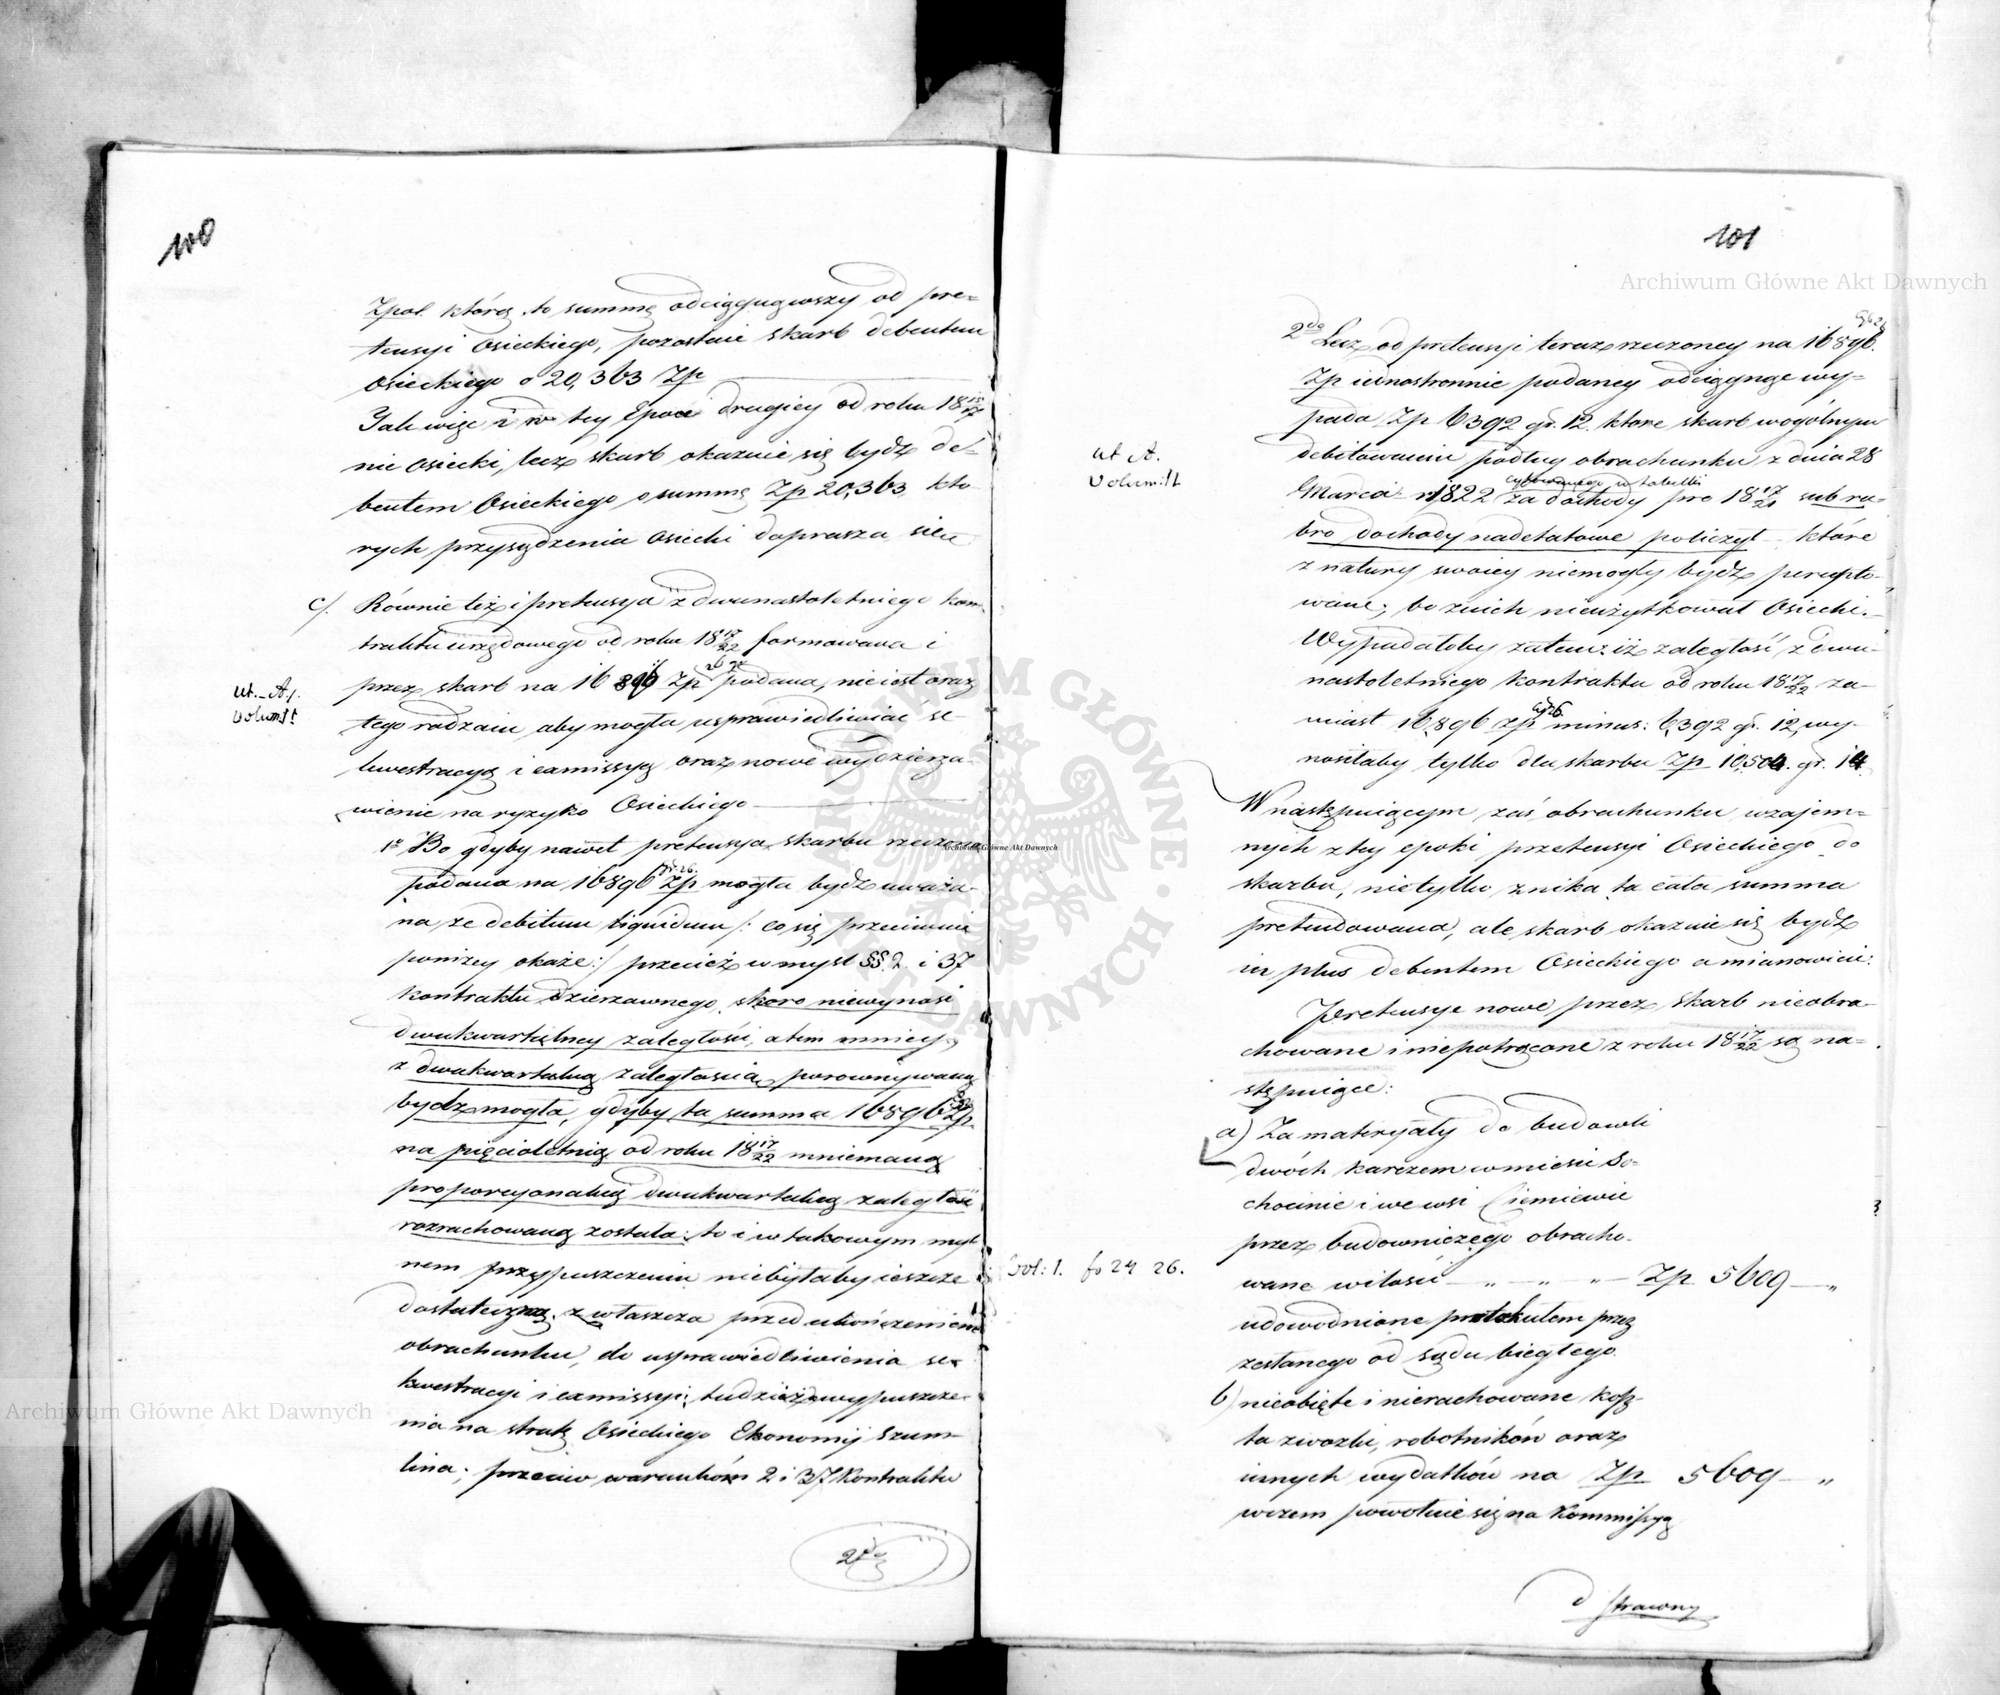 100
Zpol. którą to summę odciągnąwszy od pre=
tensyi Osieckiego, pozostaie skarb debentem
Osieckiego o 20,363 Zp
Tak więc i w tey Epoce drugiey od roku 18 15/17
nie Osiecki, lecz skarb okazuie się bydź de=
bentem Osieckiego o summę Zp 20,363 któ
rych przysądzenia Osiecki doprasza się
c/. Równie też i pretensya z dwunastoletniego kon
traktu urzędowego od roku 18 17/22 formowana i
przez skarb na 16896 Zp 26 gr podana, nie iest oraz
ut. A/.
Volum: tt
tego rodzaiu aby mogła usprawiedliwiać se-
kwestracyą i exmissyą oraz nowe wydzierża-
wienie na ryzyko Osieckiego
1º Bo gdyby nawet pretensya skarbu rzeczona
podana na 16896 Zp gr. 26. mogła bydź uważa-
na ze debitum liquidum /: co się przeciwnie
poniżey okaże :/ przecież w myśl §§. 2 i 37
kontraktu dzierżawnego, skoro niewynosi
dwukwartalney zaległości, a tem mniey
z dwukwartalną zaległością porownywaną
bydź mogła, gdyby ta summa 16896 Zp
na pięcioletnią od roku 18 17/22 mniemaną
proporcyonalną dwukwartalną zaległość
rozrachowaną została: to i w takowym myl
nem przypuszczeniu niebyłaby ieszcze
dostateczną, zwłaszcza przed ukończeniem
obrachunku, do usprawiedliwienia se-
kwestracyi i exmissyi, tudzież wypuszcze-
nia na stratę Osieckiego Ekonomij Szum-
lina; przeciw warunkom 2 i 37 Kontraktu
2do
101
2do Lecz od pretensyi teraz rzeczoney na 16896. gr 26
Zp iednostronnie podaney odciągnąć wy=
pada Zp 6392 gr. 12. które skarb w ogólnym
ut A.
Volum: tt
debitowaniu podług obrachunku z dnia 28
Marca r. 1822 za dochody pro 18 17/21 sub ru-
bro dochody nadetatowe policzył które
z natury swoiey niemogły bydź percepto-
wane, bo z nich nieużytkował Osiecki.
Wypadałoby zatem, iż zaległość z dwu-
nastoletniego kontraktu od roku 18 17/22 za-
miast 16,896 Zp gr 26 minus: 6,392 gr. 12, wy-
nosiłaby tylko dla skarbu Zp 10,504. gr. 14
W następuiącym zaś obrachunku wzajem=
nych z tey epoki pretensyi Osieckiego do
skarbu, nietylko znika ta cała summa
pretendowana, ale skarb okazuie się bydź
in plus debentem Osieckiego a mianowicie:
Pretensye nowe przez skarb nieobra-
chowane i niepotrącone z roku 18 17/22 są na=
stępuiące:
a) Za materyały do budowli
dwóch karczem w mieście So=
chocinie i we wsi Ciemiewie
przez budowniczego obracho-
Vol: 1. fo 24 26.
wane w ilości „ „ „ Zp 5609 „
udowodnione protokułem przez
zesłanego od sądu biegłego
b) nieobięte i nierachowane kosz-
ta zwozki, robotników oraz
innych wydatków na Zp 5609 „
wczem powołuie się na Kommissyą